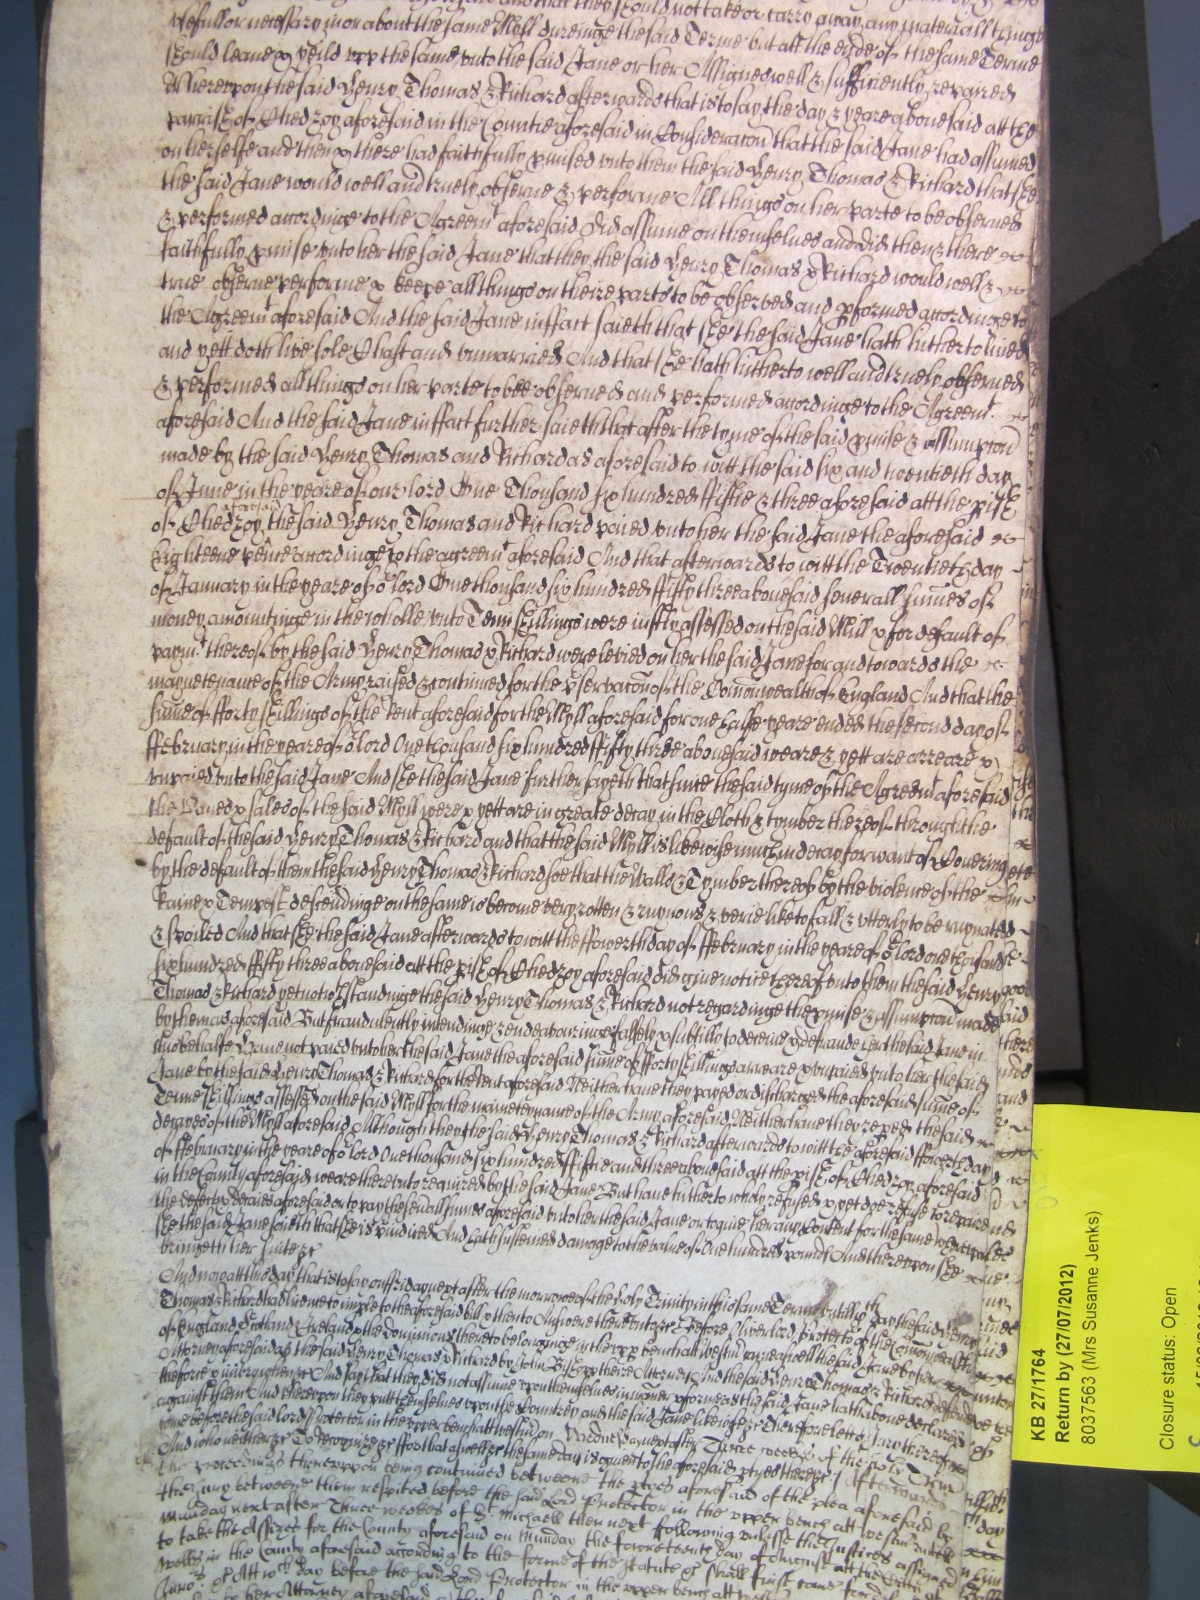 usefull or necessary in or about the same Myll dureinge the said Terme but att the ende of the same Terme
should leave & yeild upp the same unto the said Jane or her Assignes well & sufficiently repaired
Whereupon the said Henry Thomas & Richard afterwards that is to say the day & yeare abovesaid att the
parish of Chedzoy aforesaid in the Countie aforesaid in Consideracon that the said Jane had assumed
on herselfe and then & there had faithfully pmised unto them the said Henry Thomas & Richard that shee
the said Jane would well and truely observe & performe All things on her parte to be observed
& performed accordinge to the Agreemt aforesaid did assume on themselves and did then & there
faithfully pmise unto her the said Jane that they the said Henry Thomas & Richard would well &
true observe performe & keepe all things on theire parts to be observed and pformed accordinge to
the Agreemt aforesaid And the said Jane in ffact saieth that she the said Jane hath hitherto lived
and yett doth live sole Chast and unmarried And that she hath hitherto well and truely observed
& performed all things on her parte to bee observed and performed accordinge to the Agreemt
aforesaid And the said Jane in ffact further saieth that after the tyme of the said pmise & assumpton
made by the said Henry Thomas and Richard as aforesaid to witt the said six and twentieth day
of June in the yeare of our lord One Thousand six hundred ffiftie & three aforesaid att the pish
of Chedzoy aforesaid the said Henry Thomas and Richard paied unto her the said Jane the aforesaid
Eighteene pence accordinge to the agreemt aforesaid And that afterwards to witt the Twentieth day
of January in the yeare of or lord One thousand six hundred ffifty three abovesaid severall sumes of
money amountinge in the wholle unto Tenn shillings were iustly assessed on the said Mill & for default of
paymt thereof by the said Henry Thomas & Richard were levied on her the said Jane for and towards the
mayntenance of the Army raised & continued for the pservacon of the Comonwealth of England And that the
sume of fforty shillings of the rent aforesaid for the Myll aforesaid for one halfe yeare ended the second day of
ffebruary in the yeare of or lord One thousand six hundred ffifty three abovesaid weare & yett are arreare &
unpaied unto the said Jane And she the said Jane further sayeth that since the said tyme of the Agreemt aforesaid
the Vanes & sales of the said Myll were & yett are in greate decay in the Cloth & tymber thereof through the
default of the said Henry Thomas & Richard and that the said Myll is likewise much in decay for want of Coveringe
by the default of them the said Henry Thomas & Richard soe that the Walls & Tymber thereof by the violence of the
Raine & Tempest descendinge on the same is become very rotten & ruynous & verie like to fall & utterly to be ruynated
& spoiled And that she the said Jane afterwards to witt the ffowerth day of ffebruary in the yeare of or lord one thousand
six hundred ffifty three abovesaid att the pish of Chedzoy aforesaid did give notice thereof unto them the said Henry
Thomas & Richard yet notwthstandinge the said Henry Thomas & Richard not regardinge the pmise & assumpton made
by them as aforesaid But fraudulently intendinge & endeavouringe falsely & subtilly to deceive & defraude her the said Jane in
this behalfe Have not paied unto her the said Jane the aforesaid sume of fforty shillings arreare & unpaied unto her the said
Jane by the said Henry Thomas & Richard for the rent aforesaid Neither have they payed or discharged the aforesaid sume of
Tenn shillings assessed on the said Myll for the mainetennance of the Army aforesaid Neither have they reped the said
decayes of the Myll aforesaid Although they the said Henry Thomas & Richard afterwards to witt the aforesaid ffowerth day
of ffebruary in the yeare of or lord One thousand six hundred ffiftie and three abovesaid att the pish of Chedzoy aforesaid
in the County aforesaid weare thereunto required by the said Jane But have hitherto wholy refused & yet doe refuse to repaire
the defects & decaies aforesaid or to pay the sevall sumes aforesaid unto her the said Jane or to give her any Content for the same whereupon
she the said Jane saieth that she is preiudiced And hath susteined damage to the value of One hundred pounds And thereupon she
bringeth her suite &c
And now att this day that is to say on ffriday next after the morrowe of the holy Trinity in this same Terme untill wch day the said Henry
Thomas & Richard had licence to imple to the aforesaid bill & then to Answere thereunto &c Before Oliver lord Protector of the Comonwealth
of England Scotland & Ireland & the dominions thereto belonginge in the upp bench att Westmr came aswell the said Jane by her
Attorney aforesaid as the said Henry Thomas & Richard by John Bishop there Attorney And the said Henry Thomas & Richard defend
the force & iniury when &c And say that they did not assume upon themselves in manner & forme as the said Jane hath above declared
against them And thereupon they putt themselves upon the Countrey and the said Jane likewise &c Therefore lett a Jury thereof
come before the said lord Protector in the upper bench att Westmr on Wednesday next after Three weekes of the holy Trinity
And who neither &c To recognize &c ffor that aswell &c the same day is given to the aforesaid pties there &c Afterwards
the proceedings thereuppon being continued betweene the pties aforesaid of the plea aforesaid by
the Jury betweene them respited before the said Lord Protector in the upper bench att Westmr untill
Munday next after Three weekes of St Michaell then next following unlesse the Justices assigned
to take the Assizes for the County aforesaid on Munday the fowreteenth day of August att the Citty of
Wells in the County aforesaid according to the forme of the statute &c shall first come for
Jurors &c Att wch day before the said Lord Protector in the upper bench att Westmr
by her Attorney aforesaid
KB 27/1764
Return by (27/07/2012)
8037563 (Mrs Susanne Jenks)
Closure status: Open